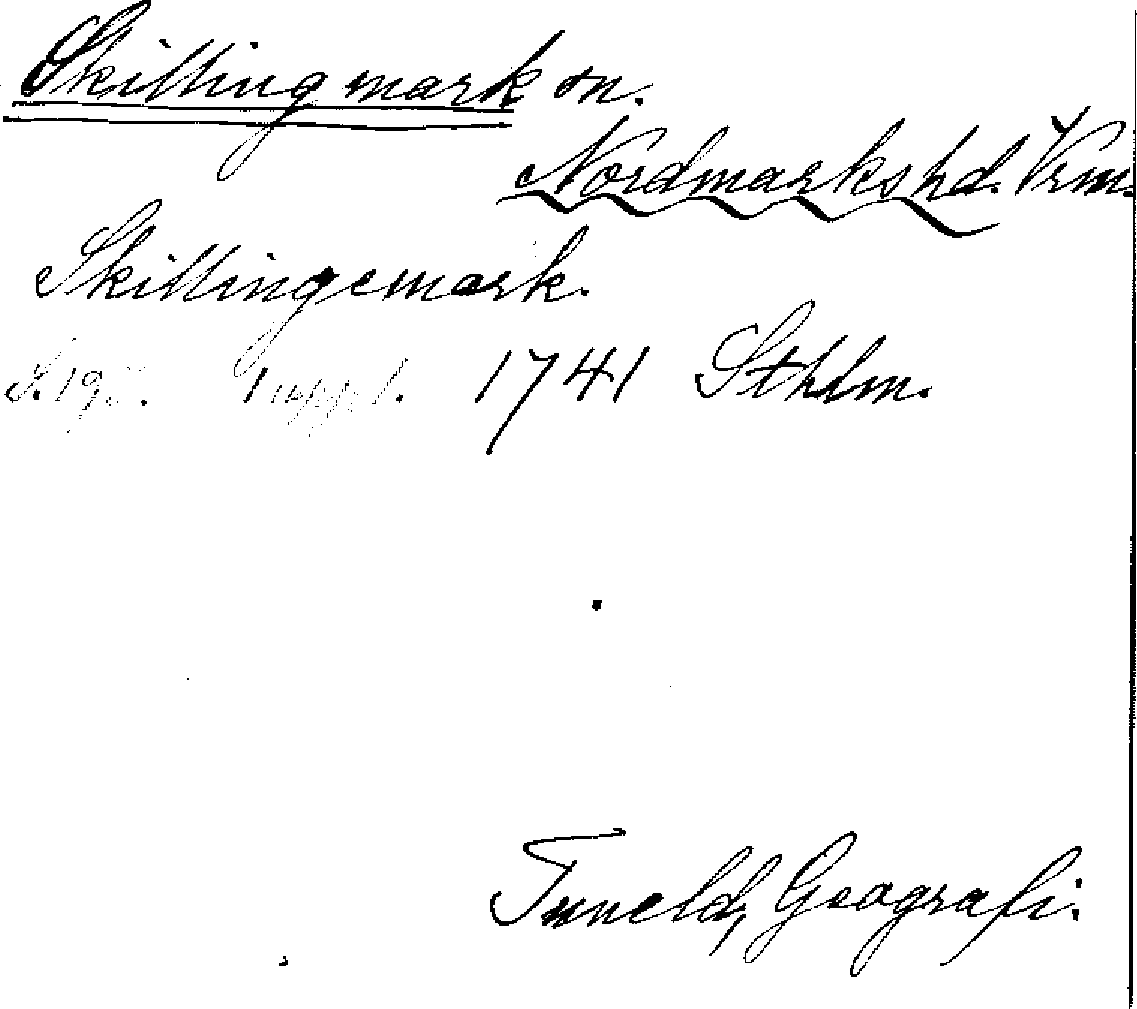 Skillingmark sn.
Nordmarkshd. Vrm.
Skillingemark.
1741 Sthlm.
Tuneld, Geografi.